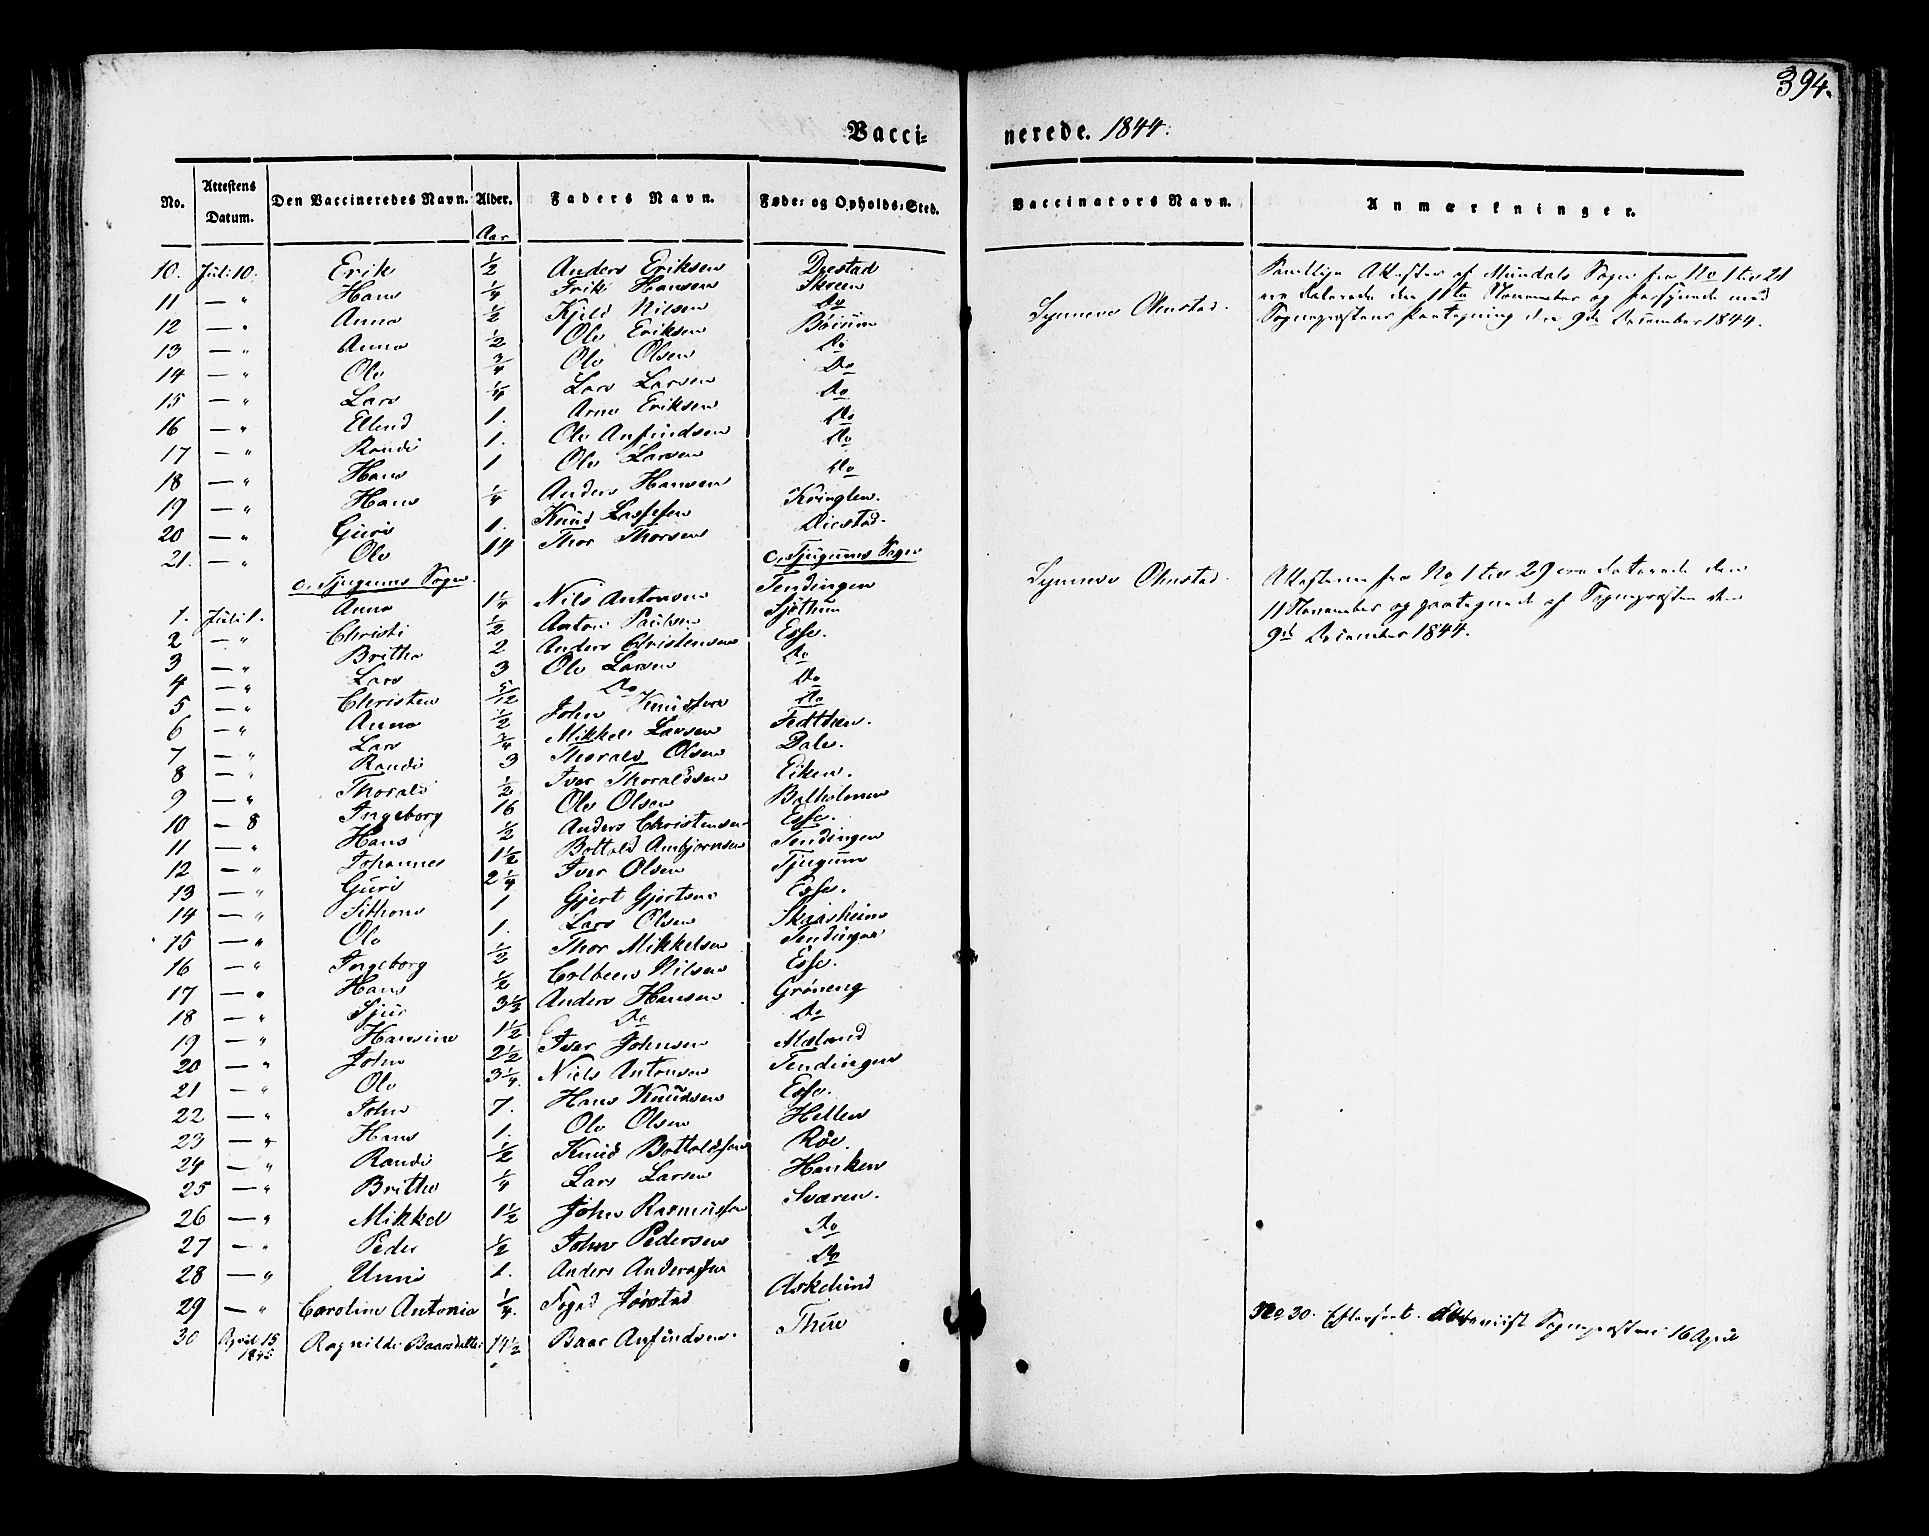 394.
Vacci= nerede. 1844.
No. Attestens Datum. Den Vaccineredes Navn. Alder. Faders Navn. Føde= og Opholds=Sted. Vaccinators Navn. Anmærkninger.
Aar
10. Juli 10. Erik 1/2 Anders Eriksen
11 — " Hans 1/4 Erik Hansen Skreen
12 — " Anna 1/2 Kjeld Nilsen Do
13 — " Anna 1/2 Ole Eriksen Bøium
14 — " Ole 3/4 Ole Olsen Do
15 — " Lars 1/4 Lars Larsen Do
16 — " Ellend 1. Arne Eriksen Do
17 — " Randi 1. Ole Anfindsen Do
18 — " Hans 1 Ole Larsen Do
19 — " Hans 1/4 Anders Hansen Do
20 — " Guri 1. Knud Lassesen
21. — " Ole 14 Thor Thorsen
Synneve Olmstad.
Samtlige Attester af Mundals Sogn fra No 1 til 21
ere daterede den 11te November og forsynede med
Sognepræstens Paategning den 9de December 1844.
c, Tjugums Sogn. c, Tjugums Sogn
1. Juli 1. Anna 1 1/4 Nils Antonsen Tendingen
2 — " Christi 1/2 Anton Paulsen Sjøthun
3 — " Brithe 2 Anders Christensen Esse.
4 — " Lars 3 Ole Larsen Do
5 — " Christen 5/12 Do Do
6 — " Anna 1/2 John Knudsen Do
7 — " Lars 3/4 Mikkel Larsen
8 — " Randi 3 Thorald Olsen Dale.
9 — " Thorald 1/2 Iver Thoraldsen Eiken.
10 — 8 Ingeborg 16 Ole Olsen Balholmen
11 — " Hans 1/2 Anders Christensen Esse.
12 — " Johannes 1 1/2 Bottold Anbjørnsen Tendingen
13 — " Guri 2 1/4 Iver Olsen Tjugum
14 — " Sithone 1 Gjert Gjertsen Esse.
15 — " Ole 1. Lars Olsen Skjæsheim
16 — " Ingeborg 1/2 Thor Mikkelsen Tendingen
17 — " Hans 1/2 Colbeen Nilsen Esse.
18 — " Sjur 3 1/2 Anders Hansen Grøneng
19 — " Hansine 1 1/2 Do Do
20 — " John 2 1/2 Iver Johnsen
21 — " Ole 3 1/4. Niels Antonsen Tendingen
22 — " John 7. Hans Knudsen Esse.
23 — " Hans 1. Ole Olsen Hellen
24 — " Randi 1/2 Knud Bottoldsen Røe.
25 — " Brithe 1/4 Lars Larsen Hanken
26 — " Mikkel 1 1/2 John Rasmussen Sværen.
27 — " Peder 1/2 John Pedersen Do
28 — " Unni 1. Anders Andersen Do
29 — " Caroline Antonia 1/4. Jørstad Askelund
30 April 15 1845 Ragnilde Baarsdatter 14 1/2 Baar Anfindsen.
Synneve Olmstad.
Attesterne fra No 1 til 29 ere daterede den
11 November og paategnede af Sognepræsten den
9de December 1844.
No 30. Sognepræsten 16 April